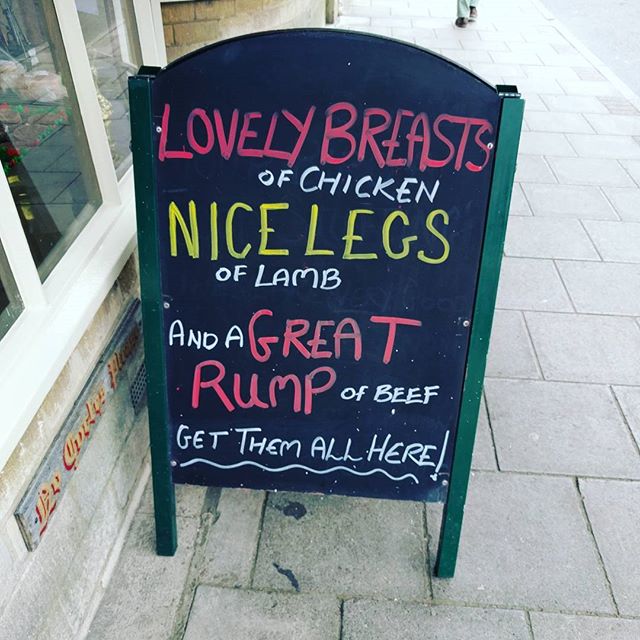 LOVELY BREASTS
OF CHICKEN
NICE LEGS
OF LAMB
AND A GREAT
RUMP OF BEEF
GET THEM ALL HERE!